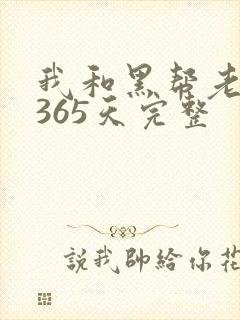 我和黑帮老
365天完整
説我帥給你花